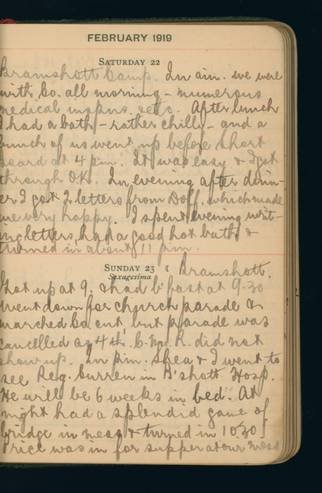 FEBRUARY 1919
SATURDAY 22
Bramshott Camp. In a.m. we were
with Co. all morning - numerous
medical inspns. etc. After lunch
I had a bath - rather chilly - and a
bunch of us went up before short
board at 4 p.m. It was easy & I got
through O.K. In evening after din-
ner I got 2 letters from Doff. which made
me very happy. I spent evening writ-
ing letters, had a good hot bath &
turned in about 11 p.m.
SUNDAY 23
Bramshott.
Sexagesima
Got up at 9. & had b'fast at 9-30
Went down for church parade &
marched Co. out but parade was
cancelled as 4th C.M.R. did not
show up. In p.m. Shea & I went to
see Reg. Curren in B'shott Hosp.
He will be 6 weeks in bed. At
night had a splendid game of
bridge in mess & turned in 10-30.
Price was in for supper at our mess